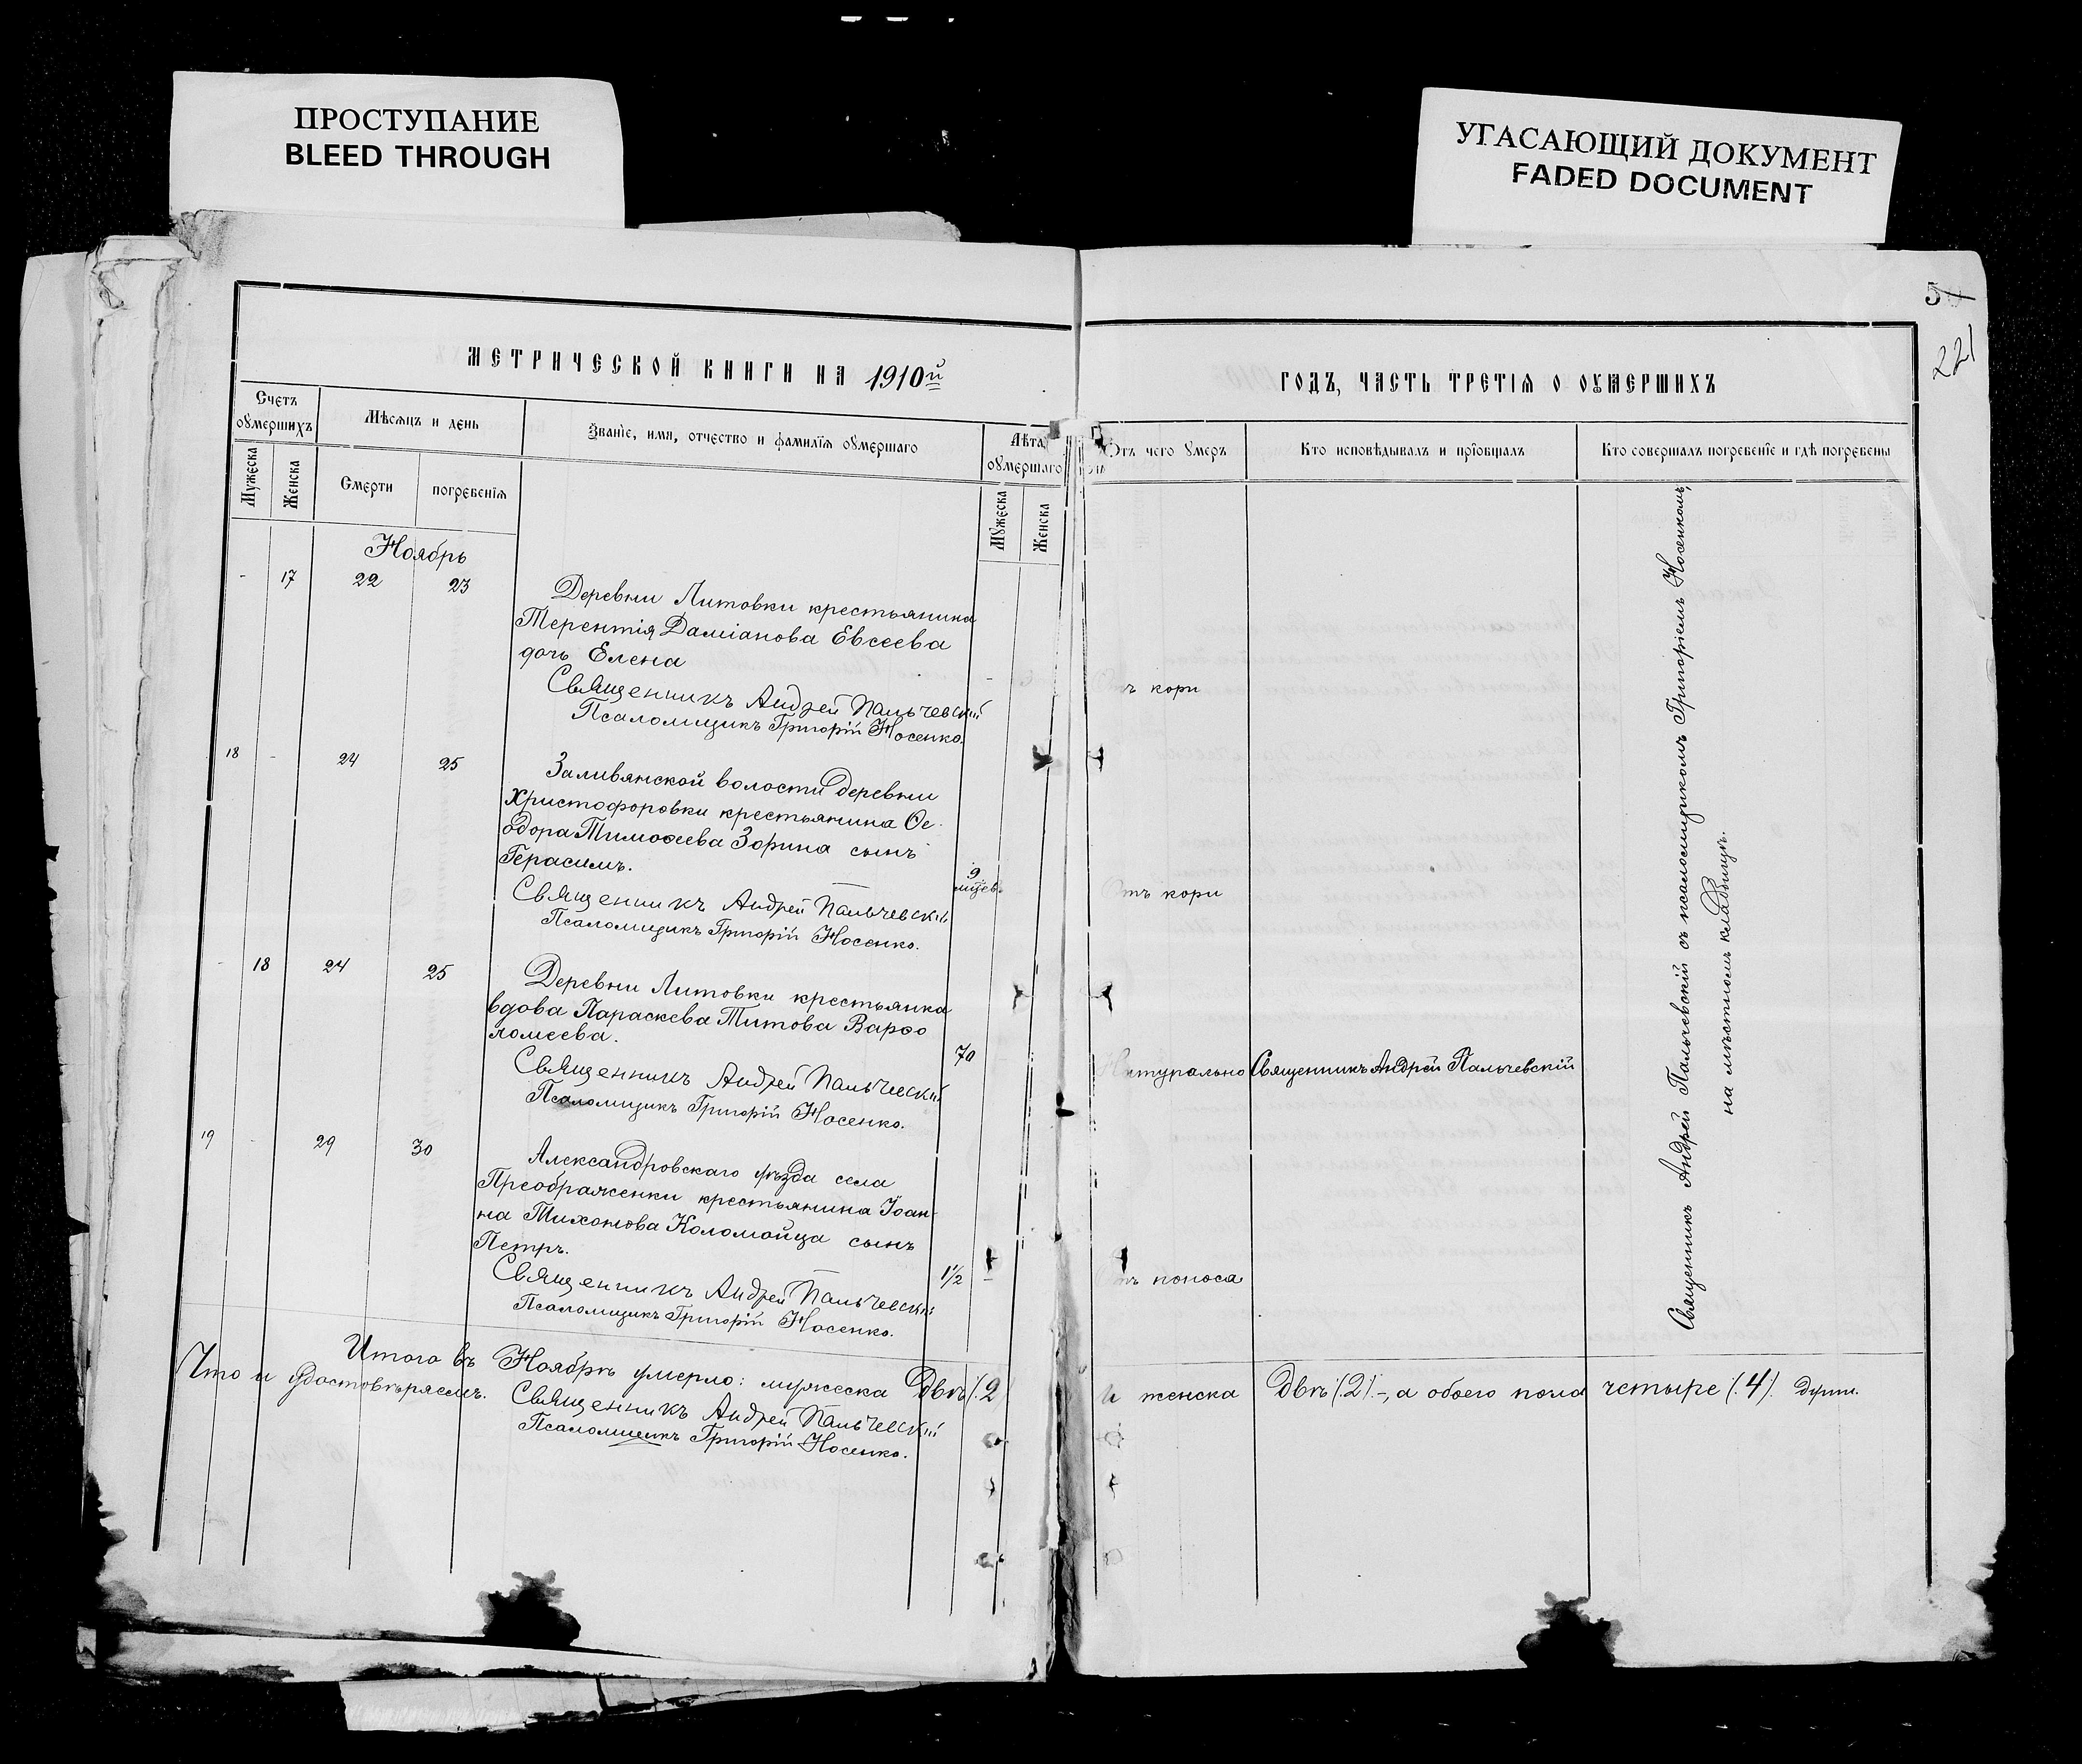 ПРОСТУПАНИЕ
BLEED THROUGH
УГАСАЮЩИЙ ДОКУМЕНТ
FADED DOCUMENT
221
МЕТРИЧЕСКОЙ КНИГИ НА 1910й
ГОДЪ, ЧАСТЬ ТРЕТІЯ О ОУМЕРШИХЪ
Счетъ оумершихъ
Мѣсяцъ и день
Званіе, имя, отчество и фамилія оумершаго
Лѣта оумершаго
Отъ чего умеръ
Кто исповѣдывалъ и пріобщалъ
Кто совершалъ погребеніе и гдѣ погребены
Мужеска
Женска
Смерти
погребенія
Мужеска
Женска
Ноябрь
- 17 22 23
Деревни Литовки крестьянина
Терентія Даміанова Евсеева
дочь Елена
Священникъ Андрей Пальчевскій
Псаломщикъ Григорій Носенко.
ъ кори
18 - 24 25
Заливянской волости деревни
Христофоровки крестьянина Ѳе-
одора Тимоѳеева Зорина сынъ
Герасимъ.
9 мѣсев.
Священникъ Андрей Пальчевскій
Псаломщикъ Григорій Носенко.
Отъ кори
- 18 24 25
Деревни Литовки крестьянка
вдова Параскева Титова Варѳо
ломеева.
70
Священникъ Андрей Пальчевскій
Псаломщикъ Григорій Носенко.
Натурально
Священникъ Андрей Пальчевскій
19 - 29 30
Александровскаго уѣзда села
Преображенки крестьянина Іоан-
на Тихонова Коломойца сынъ
Петръ.
1½ -
Священникъ Андрей Пальчевскій
Псаломщикъ Григорій Носенко.
тъ поноса
Священникъ Андрей Пальчевскій съ псаломщикомъ Григоріемъ Носенкомъ,
на мѣстномъ кладбищѣ.
Итого въ Ноябрѣ умерло: мужеска двѣ /.2
и женска двѣ /.2/.-, а обоего пола четыре /.4/. души.
Что и удостовѣряемъ.
Священникъ Андрей Пальчевскій
Псаломщикъ Григорій Носенко.